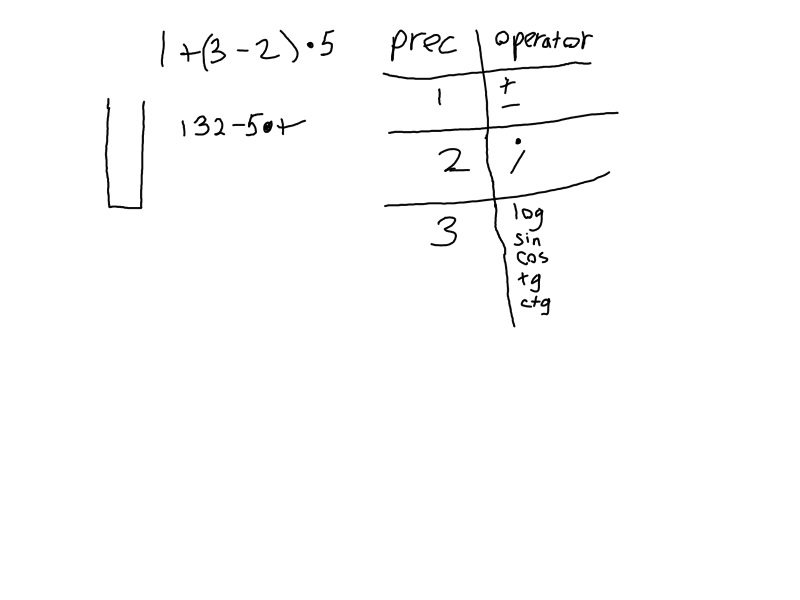 1+(3-2)·5
132-5·+
prec operator
1 +
-
2 ·
/
3 log
sin
cos
tg
ctg